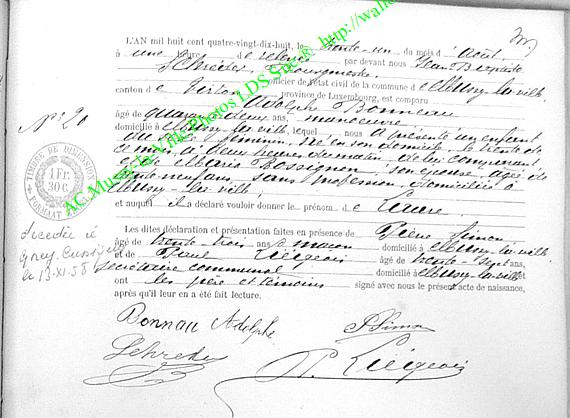 L'AN mil huit cent quatre-vingt-dix-huit, le trente-un du mois d'Août,
à une heure de relevée par devant nous Jean Baptiste
Bourgmestre, officier de l'état civil de la commune de Mussy-la-ville
canton de Virton province de Luxembourg, est comparu
Adolphe Bonneau
âgé de quarante deux ans, manoeuvre
domicilié à Mussy-la-ville, lequel nous a présenté un enfant
du sexe féminin, née en son domicile, le trente de
ce mois, à deux heures du matin, de lui comparant
et de Maria Rossignon, son épouse, âgée de
trente-neuf ans, sans profession, domiciliée à
Mussy-la-ville,
et auquel il a déclaré vouloir donner le prénom de Laure
Les dites déclaration et présentation faites en présence de Pierre Simon
âgé de trente-trois ans, maçon domicilié à Mussy-la-ville
et de Paul Liégeois âgé de trente-sept ans,
secrétaire communal domicilié à Mussy-la-ville et
ont les père et témoins signé avec nous le présent acte de naissance,
après qu'il leur en a été fait lecture.
Bonnau Adolphe
P. Simon
P. Liégeois
N° 20
TIMBRE DE DIMENSION
1 Fr.
30 C.
FORMAT
Décédée à
le 13-XI-58
AC Mussy-la-Ville Photos LDS Src@ http://wallo